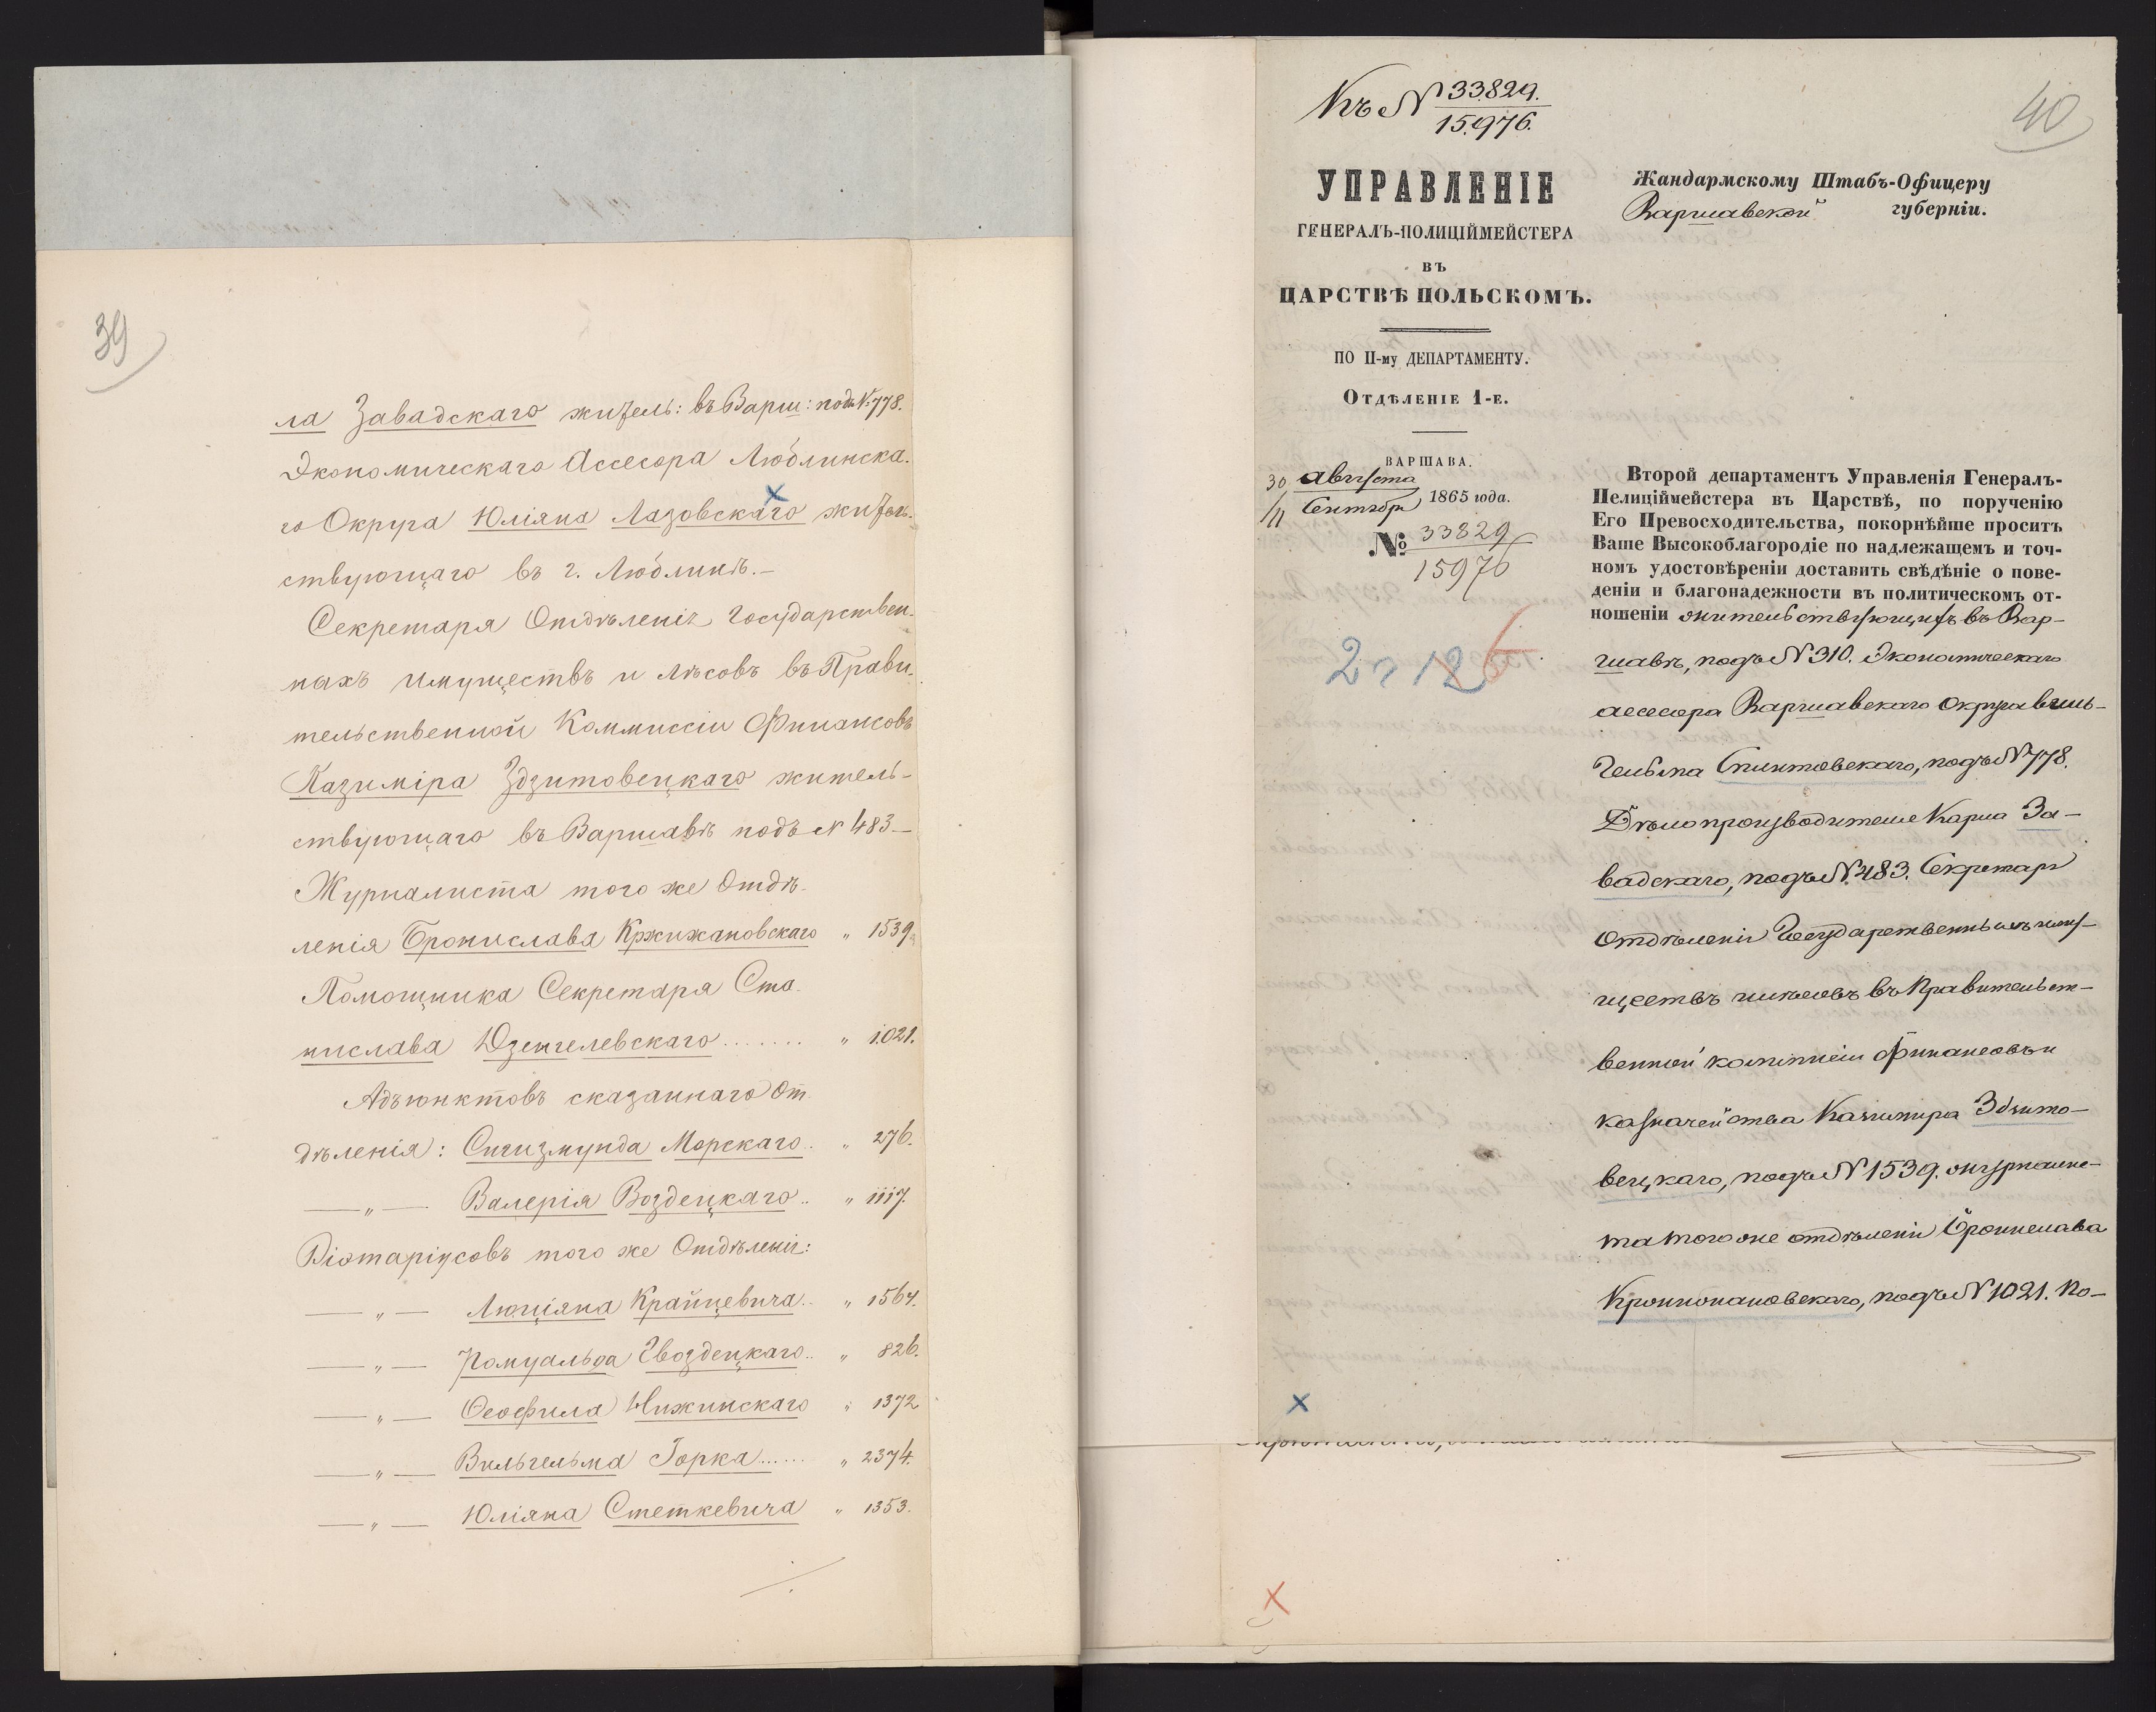 39
ла Завадскаго житель: въ Варш: подъ № 778.
Экономическаго Ассесора Люблинска-
го Округа Юліяна Лазовскаго житель-
ствующаго въ г. Люблинѣ.-
Секретаря Отдѣленія Государствен-
ныхъ имуществъ и лѣсовъ въ Прави-
тельственной Коммиссіи Финансовъ
Казиміра Здзитовецкаго житель-
ствующаго въ Варшавѣ подъ № 483-
Журналиста того же Отдѣ-
ленія Бронислава Кржижановскаго „ 1539
Помощника Секретаря Ста-
нислава Дзенгелевскаго ....... „ 1021.
Адъюнктовъ сказаннаго От-
дѣленія: Сигизмунда Морскаго. „ 276.
— „ — Валерія Воздецкаго.. „ 1117.
Діэтаріусовъ того же Отдѣленія:
— „ — Люціяна Крайцевича.. „ 1564.
— „ — Ромуальда Гвоздецкаго.. „ 826.
— „ — Ѳеофила Нижинскаго „ 1372
— „ — Вильгельма Горка...... „ 2374.
— „ — Юліяна Стеткевича „ 1353.
40
Къ № 33829.
15976.
УПРАВЛЕНІЕ
ГЕНЕРАЛЪ-ПОЛИЦІЙМЕЙСТЕРА
ВЪ
ЦАРСТВѢ ПОЛЬСКОМЪ.
ПО II-му ДЕПАРТАМЕНТУ.
Отдѣленіе 1-е.
ВАРШАВА.
30 Августа
/11 Сентября 1865 года.
№ 33829
15976
Жандармскому Штабъ-Офицеру
Варшавской губерніи.
Второй департаментъ Управленія Генералъ-
Пелиціймейстера въ Царствѣ, по порученію
Его Превосходительства, покорнѣйше проситъ
Ваше Высокоблагородіе по надлежащемъ и точ-
номъ удостовѣреніи доставить свѣдѣніе о пове-
деніи и благонадежности въ политическомъ от-
ношеніи жительствующихъ въ Вар-
шавѣ, подъ № 310. Экономическаго
ассесора Варшавскаго округа Виль-
гельма Спинтовскаго, подъ № 778.
Дѣлопроизводителя Карла За-
вадскаго, подъ № 483. Секретаря
отдѣленія Государственныхъ иму-
ществъ и лѣсовъ въ Правительст-
венной коммиссіи Финансовъ и
казначейства Казимира Здзито-
вецкаго, подъ № 1539. журналис-
та того же отдѣленія Бронислава
Кржижановскаго, подъ № 1021. По-